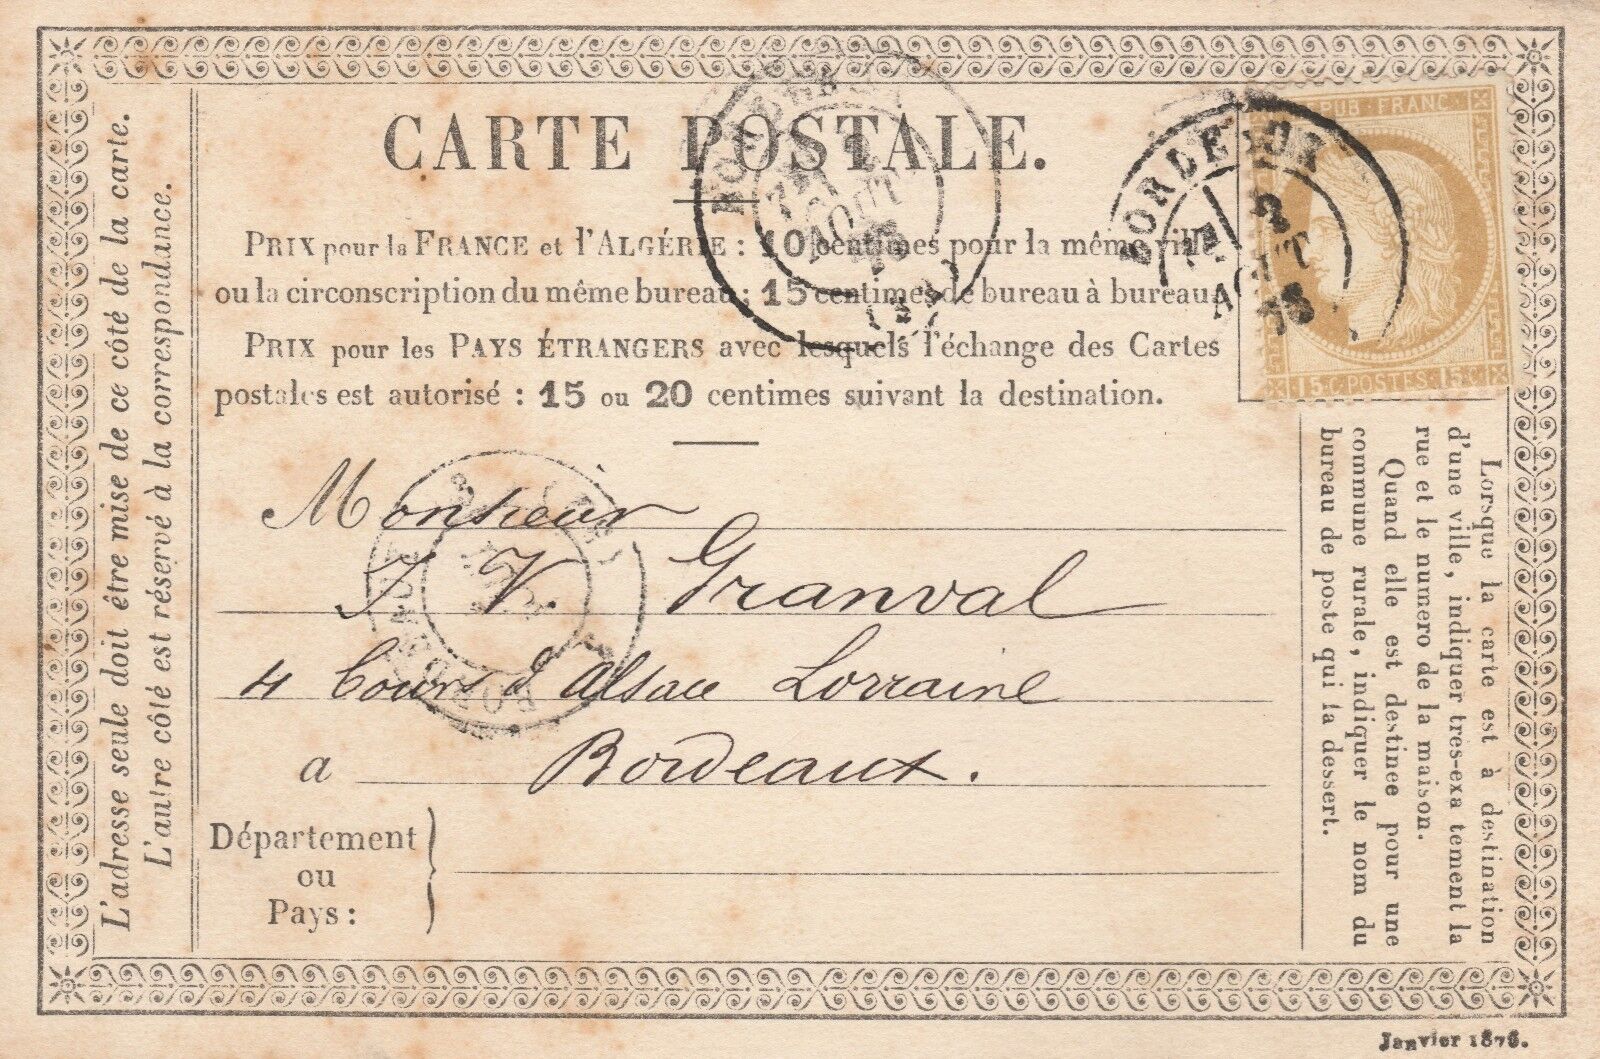 CARTE POSTALE.
PRIX pour la FRANCE et l'ALGÉRIE : 10 centimes pour la même ville
ou la circonscription du même bureau ; 15 centimes de bureau à bureau.
PRIX pour les PAYS ÉTRANGERS avec lesquels l'échange des Cartes
postales est autorisé : 15 ou 20 centimes suivant la destination.
Monsieur
J. V. Granval
4 Cours d'Alsace Lorraine
a Bordeaux.
Département
ou
Pays :
L'adresse seule doit être mise de ce côté de la carte.
L'autre côté est réservé à la correspondance.
Lorsque la carte est à destination
d'une ville, indiquer tres-exa tement la
rue et le numero de la maison.
Quand elle est destinee pour une
commune rurale, indiquer le nom du
bureau de poste qui la dessert.
PUB FRANC
15 C. POSTES 15 C
BORDEAUX
2
AOUT
BORDEAUX
AOUT
BORDEAUX
Janvier 1876.